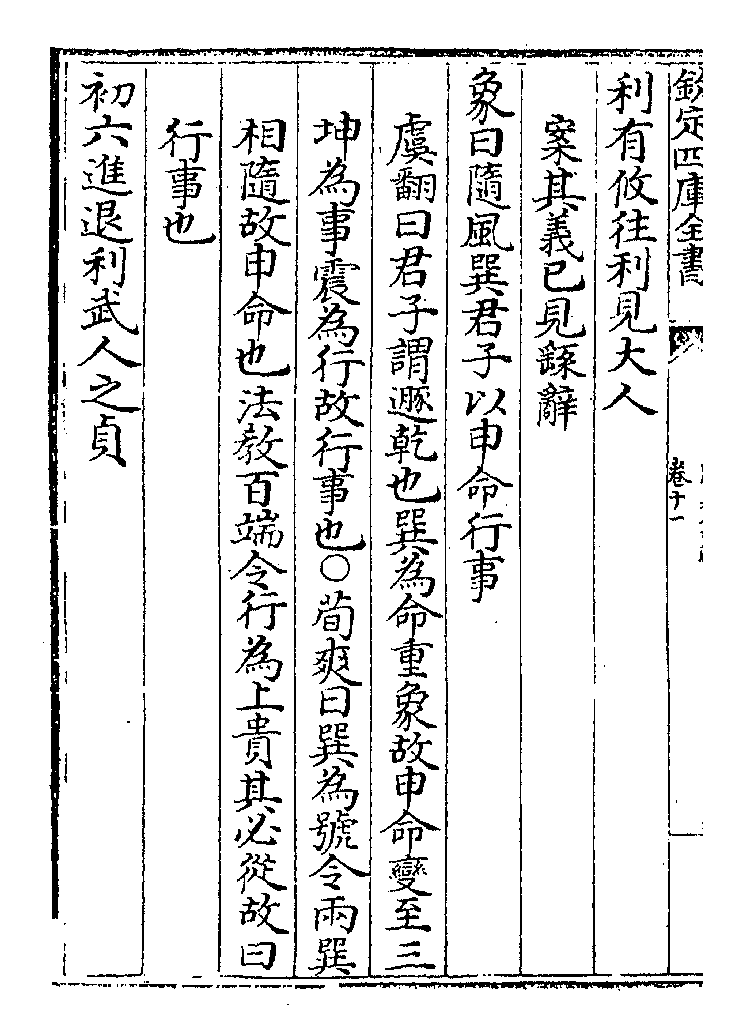 欽定四庫全書
卷十一
利有攸往利見大人
案其義已見繇辭
象曰隨風巽君子以申命行事
虞翻曰君子謂遯乾也巽為命重象故申命變至三
坤為事震為行故行事也○荀爽曰巽為號令兩巽
相隨故申命也法教百端令行為上貴其必從故曰
行事也
初六進退利武人之貞